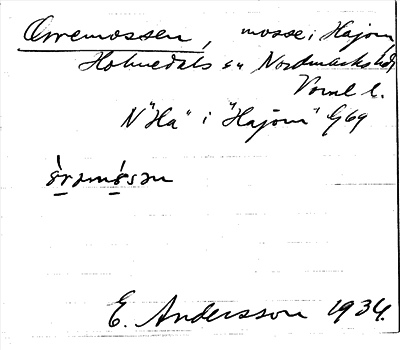 Orremossen, mosse i Hajom,
Holmedals sn Nordmarks hd,
Värml. l.
N "Ha" i "Hajom" G69
òrəmòsən
E. Andersson 1934.